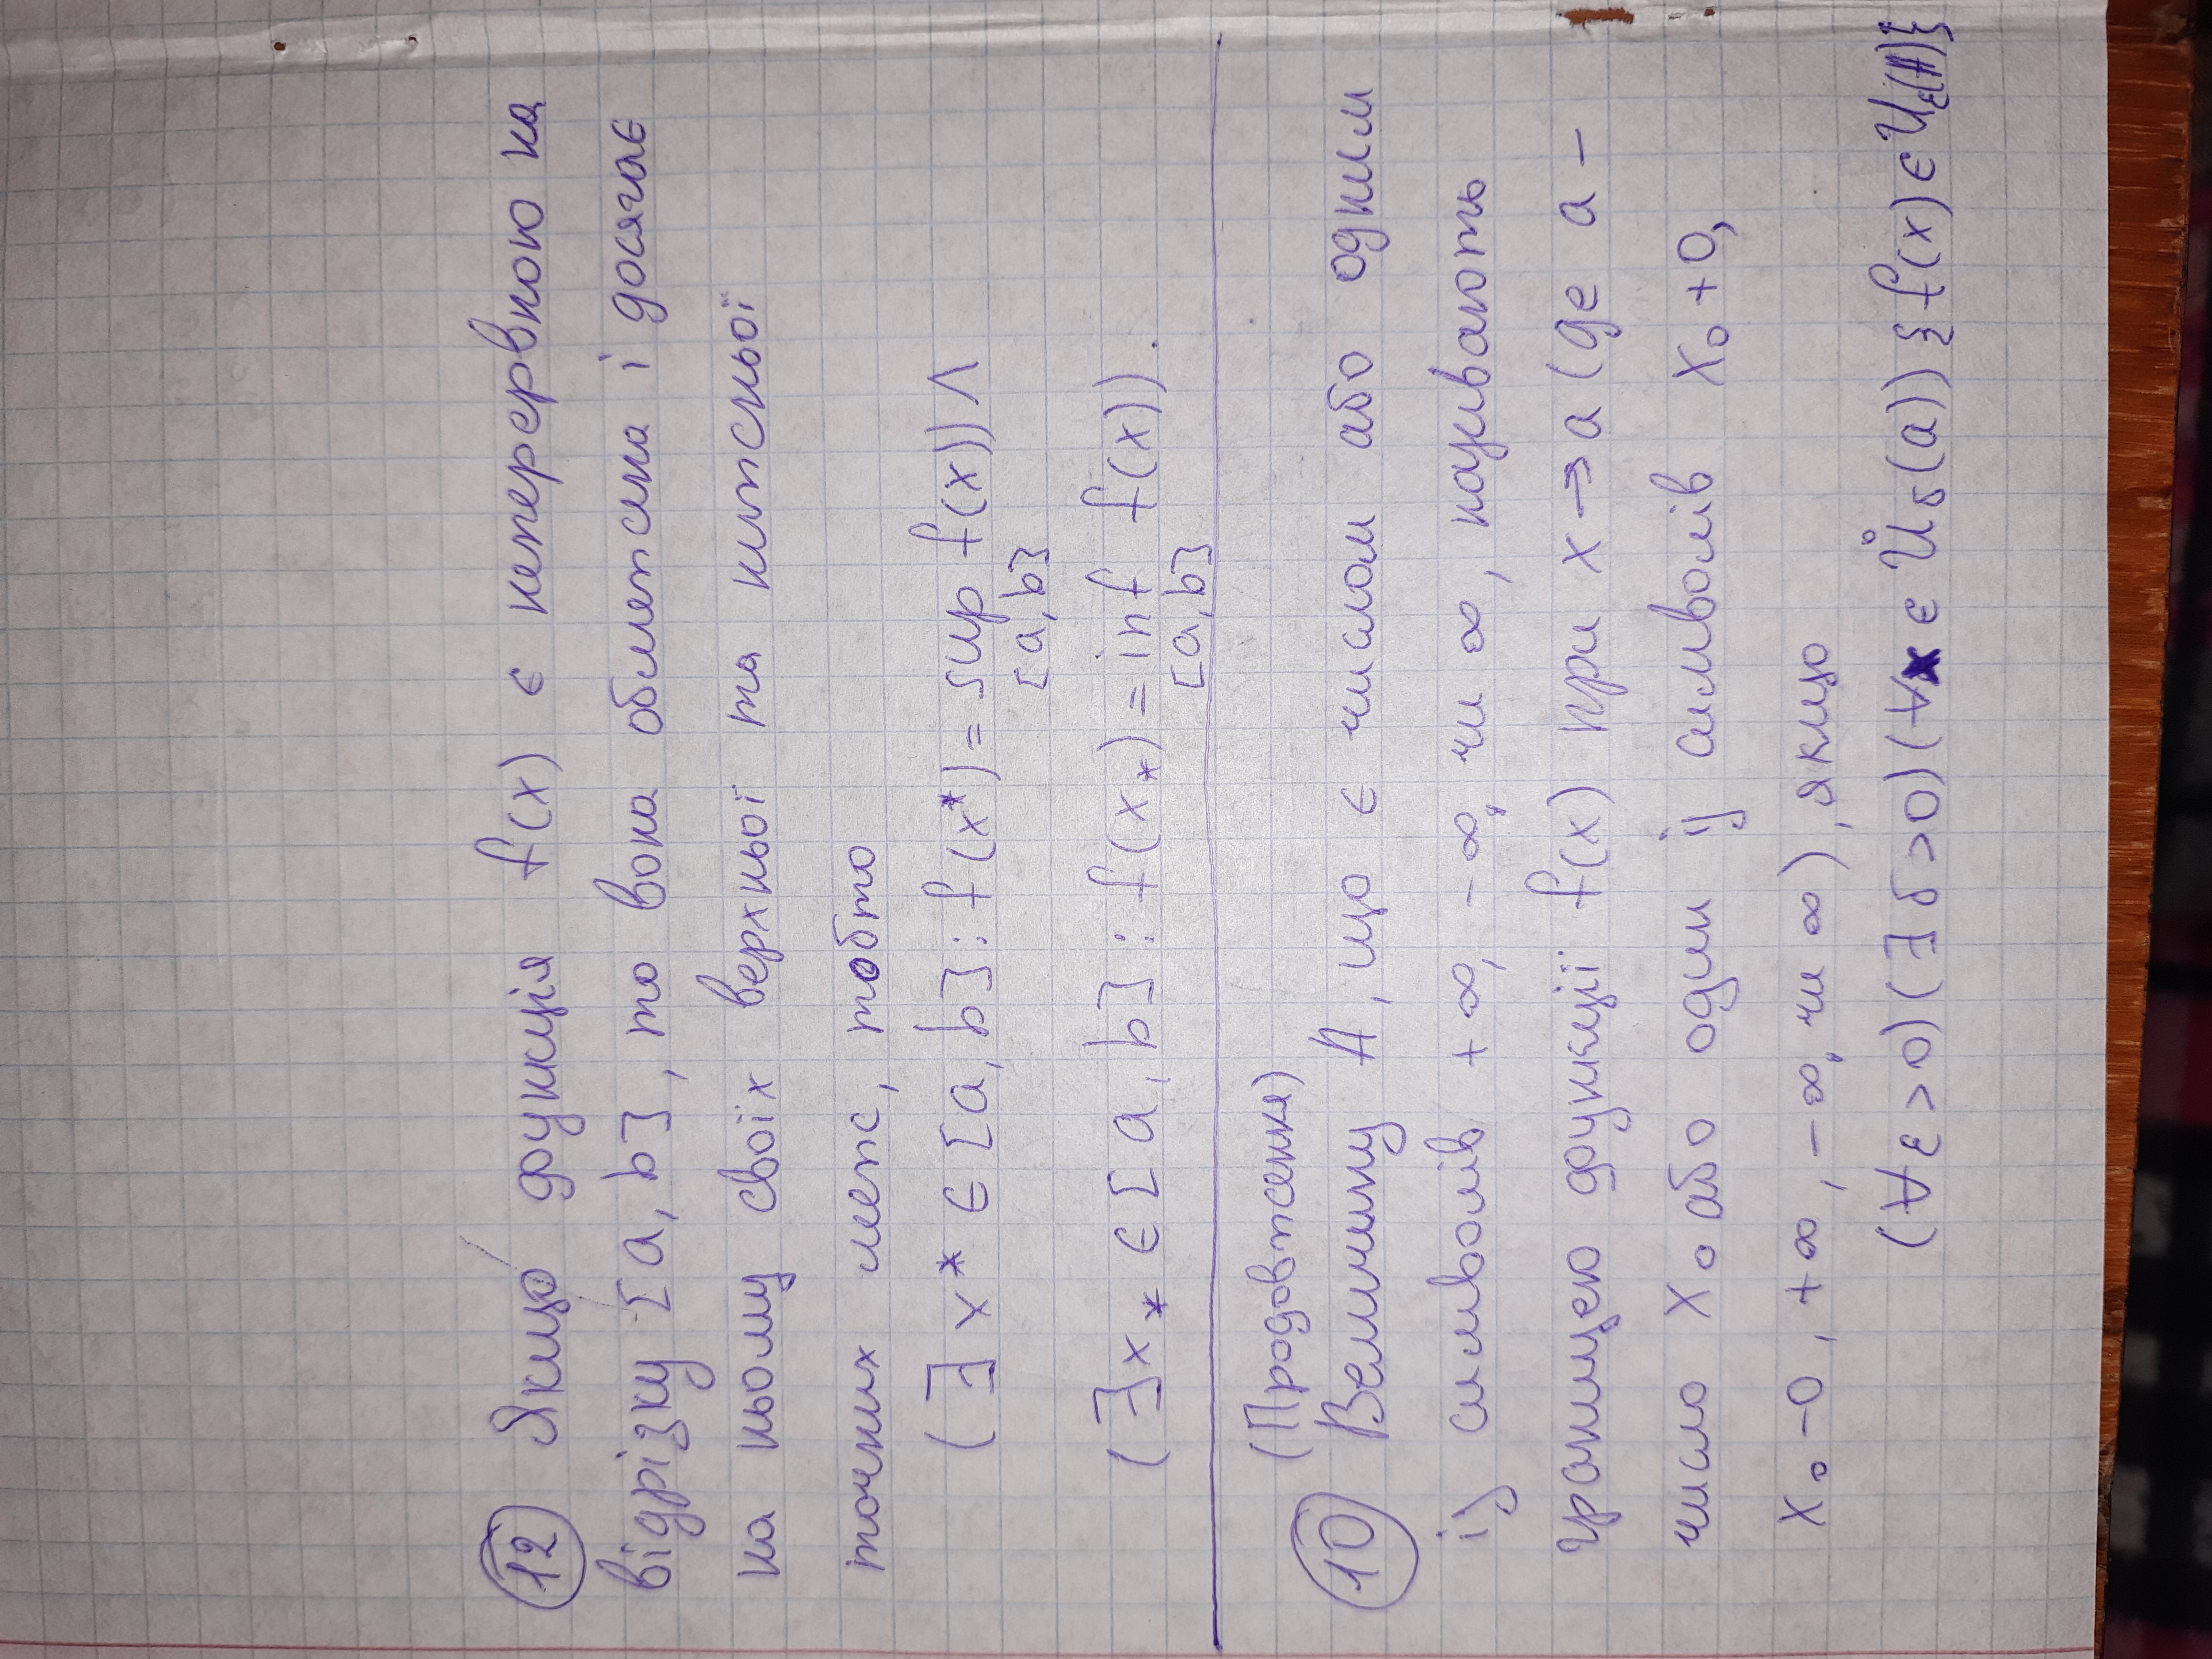 12 Якщо функція f(x) є неперервною на
відрізку [a, b], то вона обмежена і досягає
на ньому своїх верхньої та нижньої
точних меж, тобто
(∃ x* ∈ [a, b] : f(x*) = sup f(x)) ∧
[a, b]
(∃ x_* ∈ [a, b] : f(x_*) = inf f(x)).
[a, b]
(Продовження)
10 Величину A, що є числом або одним
із символів +∞, -∞, чи ∞, називають
границею функції f(x) при x → a (де a –
число x₀ або один із символів x₀ + 0,
x₀ - 0, +∞, -∞, чи ∞), якщо
(∀ε > 0) (∃ δ > 0) (∀x ∈ Ůδ(a)) {f(x) ∈ Uε(A)}